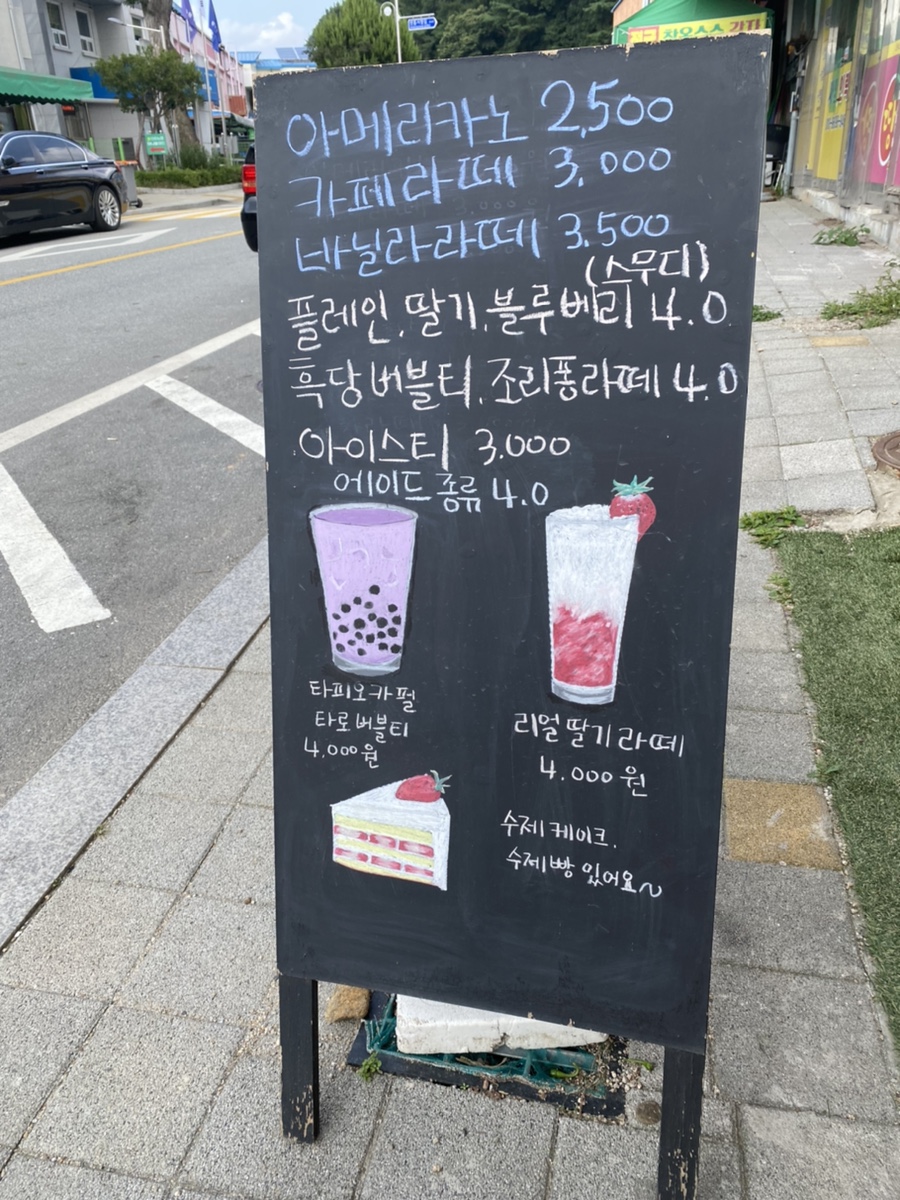 아메리카노 2,500
카페라떼 3,000
바닐라라떼 3,500
(스무디)
플레인, 딸기, 블루베리 4.0
흑당버블티, 조리퐁라떼 4.0
아이스티 3,000
에이드 종류 4.0
타피오카펄
타로버블티
4,000원
리얼딸기라떼
4,000원
수제케이크,
수제빵 있어요~